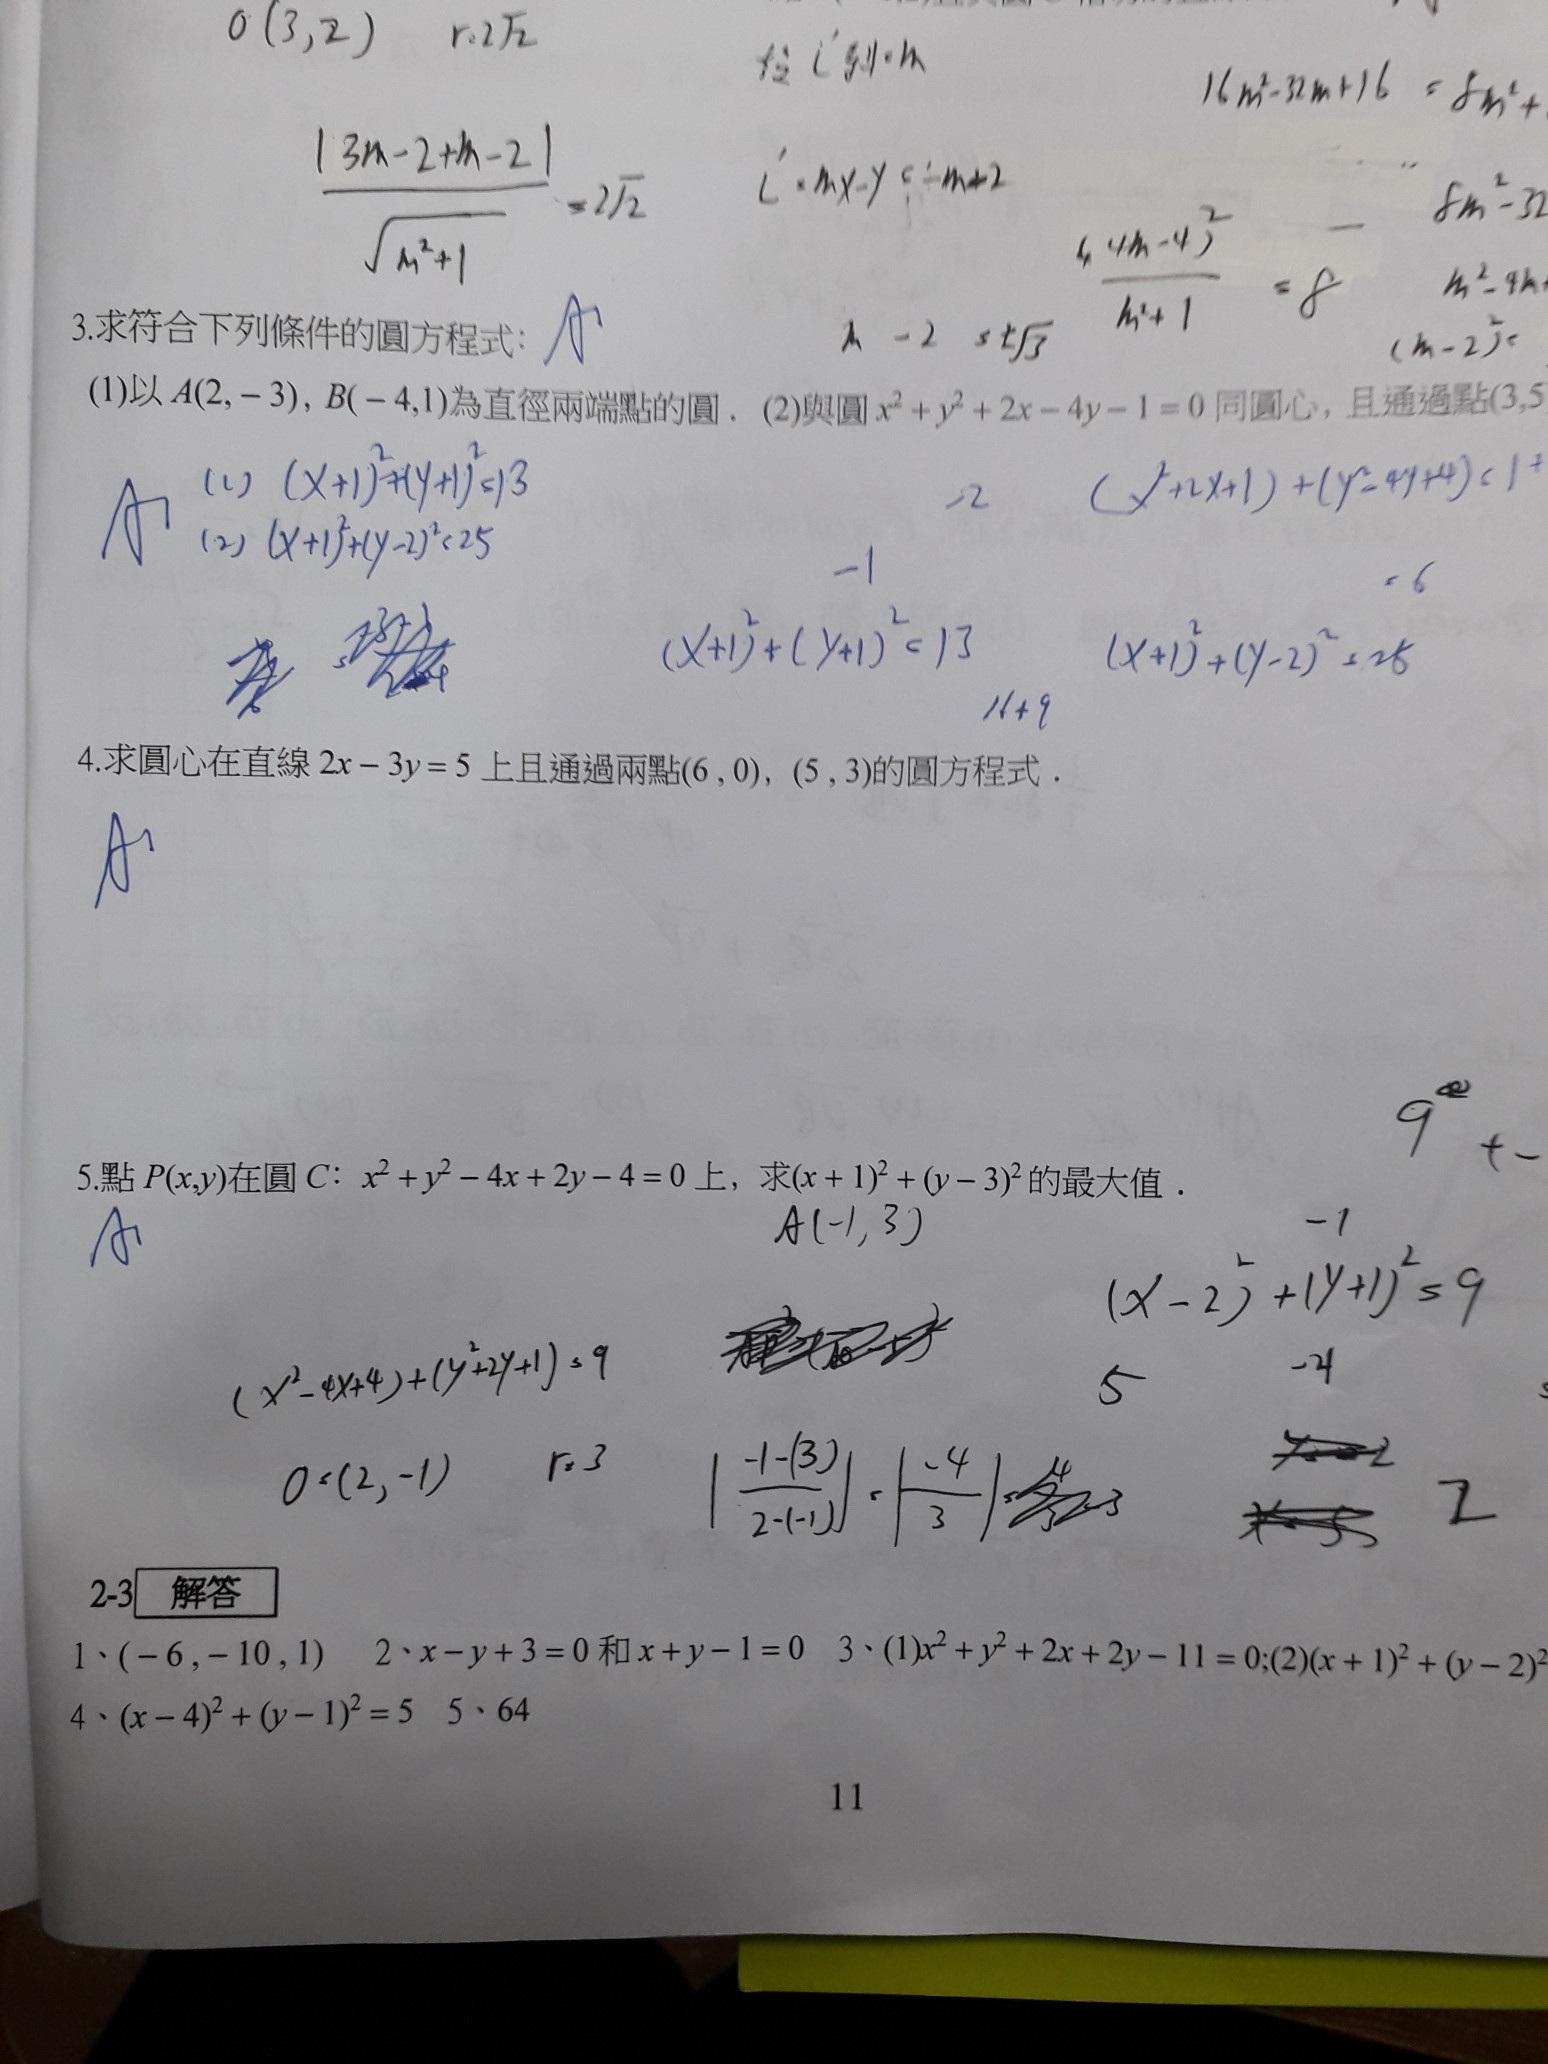 O(3,2) r=2√2
|3m-2+m-2| / √(m²+1) = 2√2
L'=mx-y=-m+2
16m²-32m+16 = 8m²+
(4m-4)² / m²+1 = 8
8m²-32
(m-2)²=
m-2 = ±√3
3.求符合下列條件的圓方程式:
(1)以 A(2, – 3), B( – 4,1)為直徑兩端點的圓. (2)與圓 x² + y² + 2x – 4y – 1 = 0 同圓心, 且通過點(3,5
A:
(1) (x+1)²+(y+1)²=13
(2) (x+1)²+(y-2)²=25
-2 (x²+2x+1)+(y²-4y+4)=1+
-1 =6
(x+1)²+(y+1)²=13 (x+1)²+(y-2)²=25
16+9
4.求圓心在直線 2x – 3y = 5 上且通過兩點(6 , 0), (5 , 3)的圓方程式.
A:
5.點 P(x,y)在圓 C: x² + y² – 4x + 2y – 4 = 0 上, 求(x + 1)² + (y – 3)² 的最大值.
A:
A(-1,3) -1
(x-2)²+(y+1)²=9
(x²-4x+4)+(y²+2y+1)=9
5 -4
O=(2,-1) r=3 |-1-(3) / 2-(-1)| = |-4/3|
2-3 解答
1、( – 6 , – 10 , 1) 2、x – y + 3 = 0 和 x + y – 1 = 0 3、(1)x² + y² + 2x + 2y – 11 = 0;(2)(x + 1)² + (y – 2)²
4、(x – 4)² + (y – 1)² = 5 5、64
11